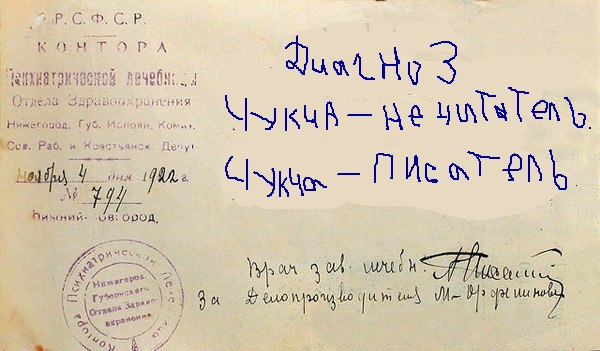 Р.С.Ф.С.Р.
КОНТОРА
Психиатрической лечебни
Отдела Здравоохранения
Нижегород. Губ. Исполн. Комит.
Сов. Раб. и Крестьянск. Депут
Ноября 4 дня 1922 г.
№ 794
Нижний-Новгород.
Диагноз
Чукча — не цитатель.
Чукча — писатель
Врач зав. лечебн.
За Делопроизводителя
Контора Психиатрической Лечебн
Нижегород.
Губернского
Отдела Здраво-
охранения